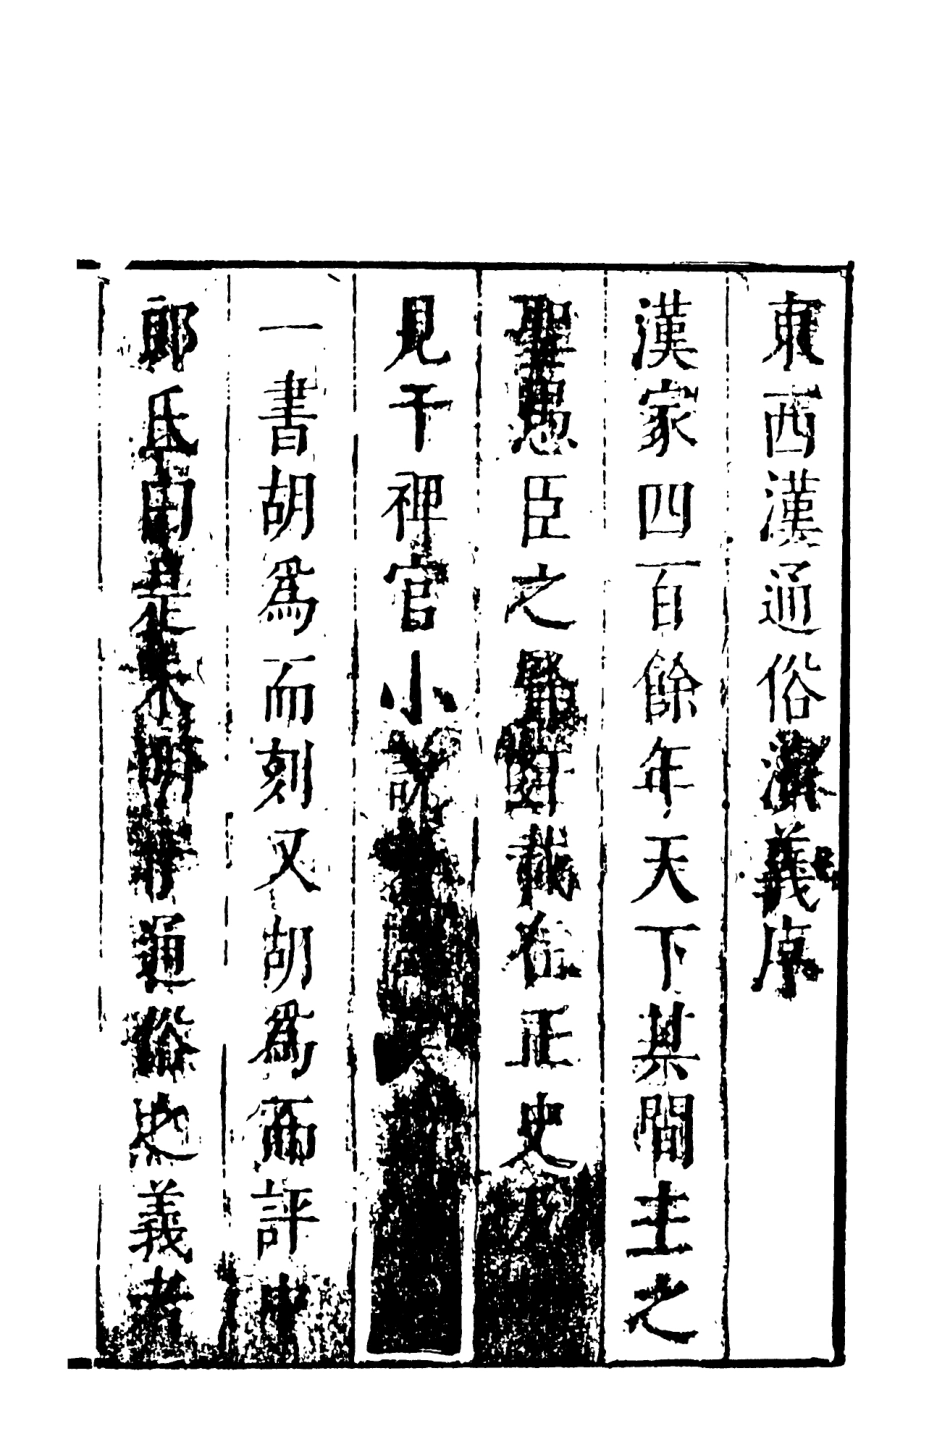 東西漢通俗演義序
漢家四百餘年天下其間主之
聖愚臣之賢奸載在正史
見于裨官小說
一書胡爲而刻又胡爲而評中
郎氏曰是未明于通俗之義者